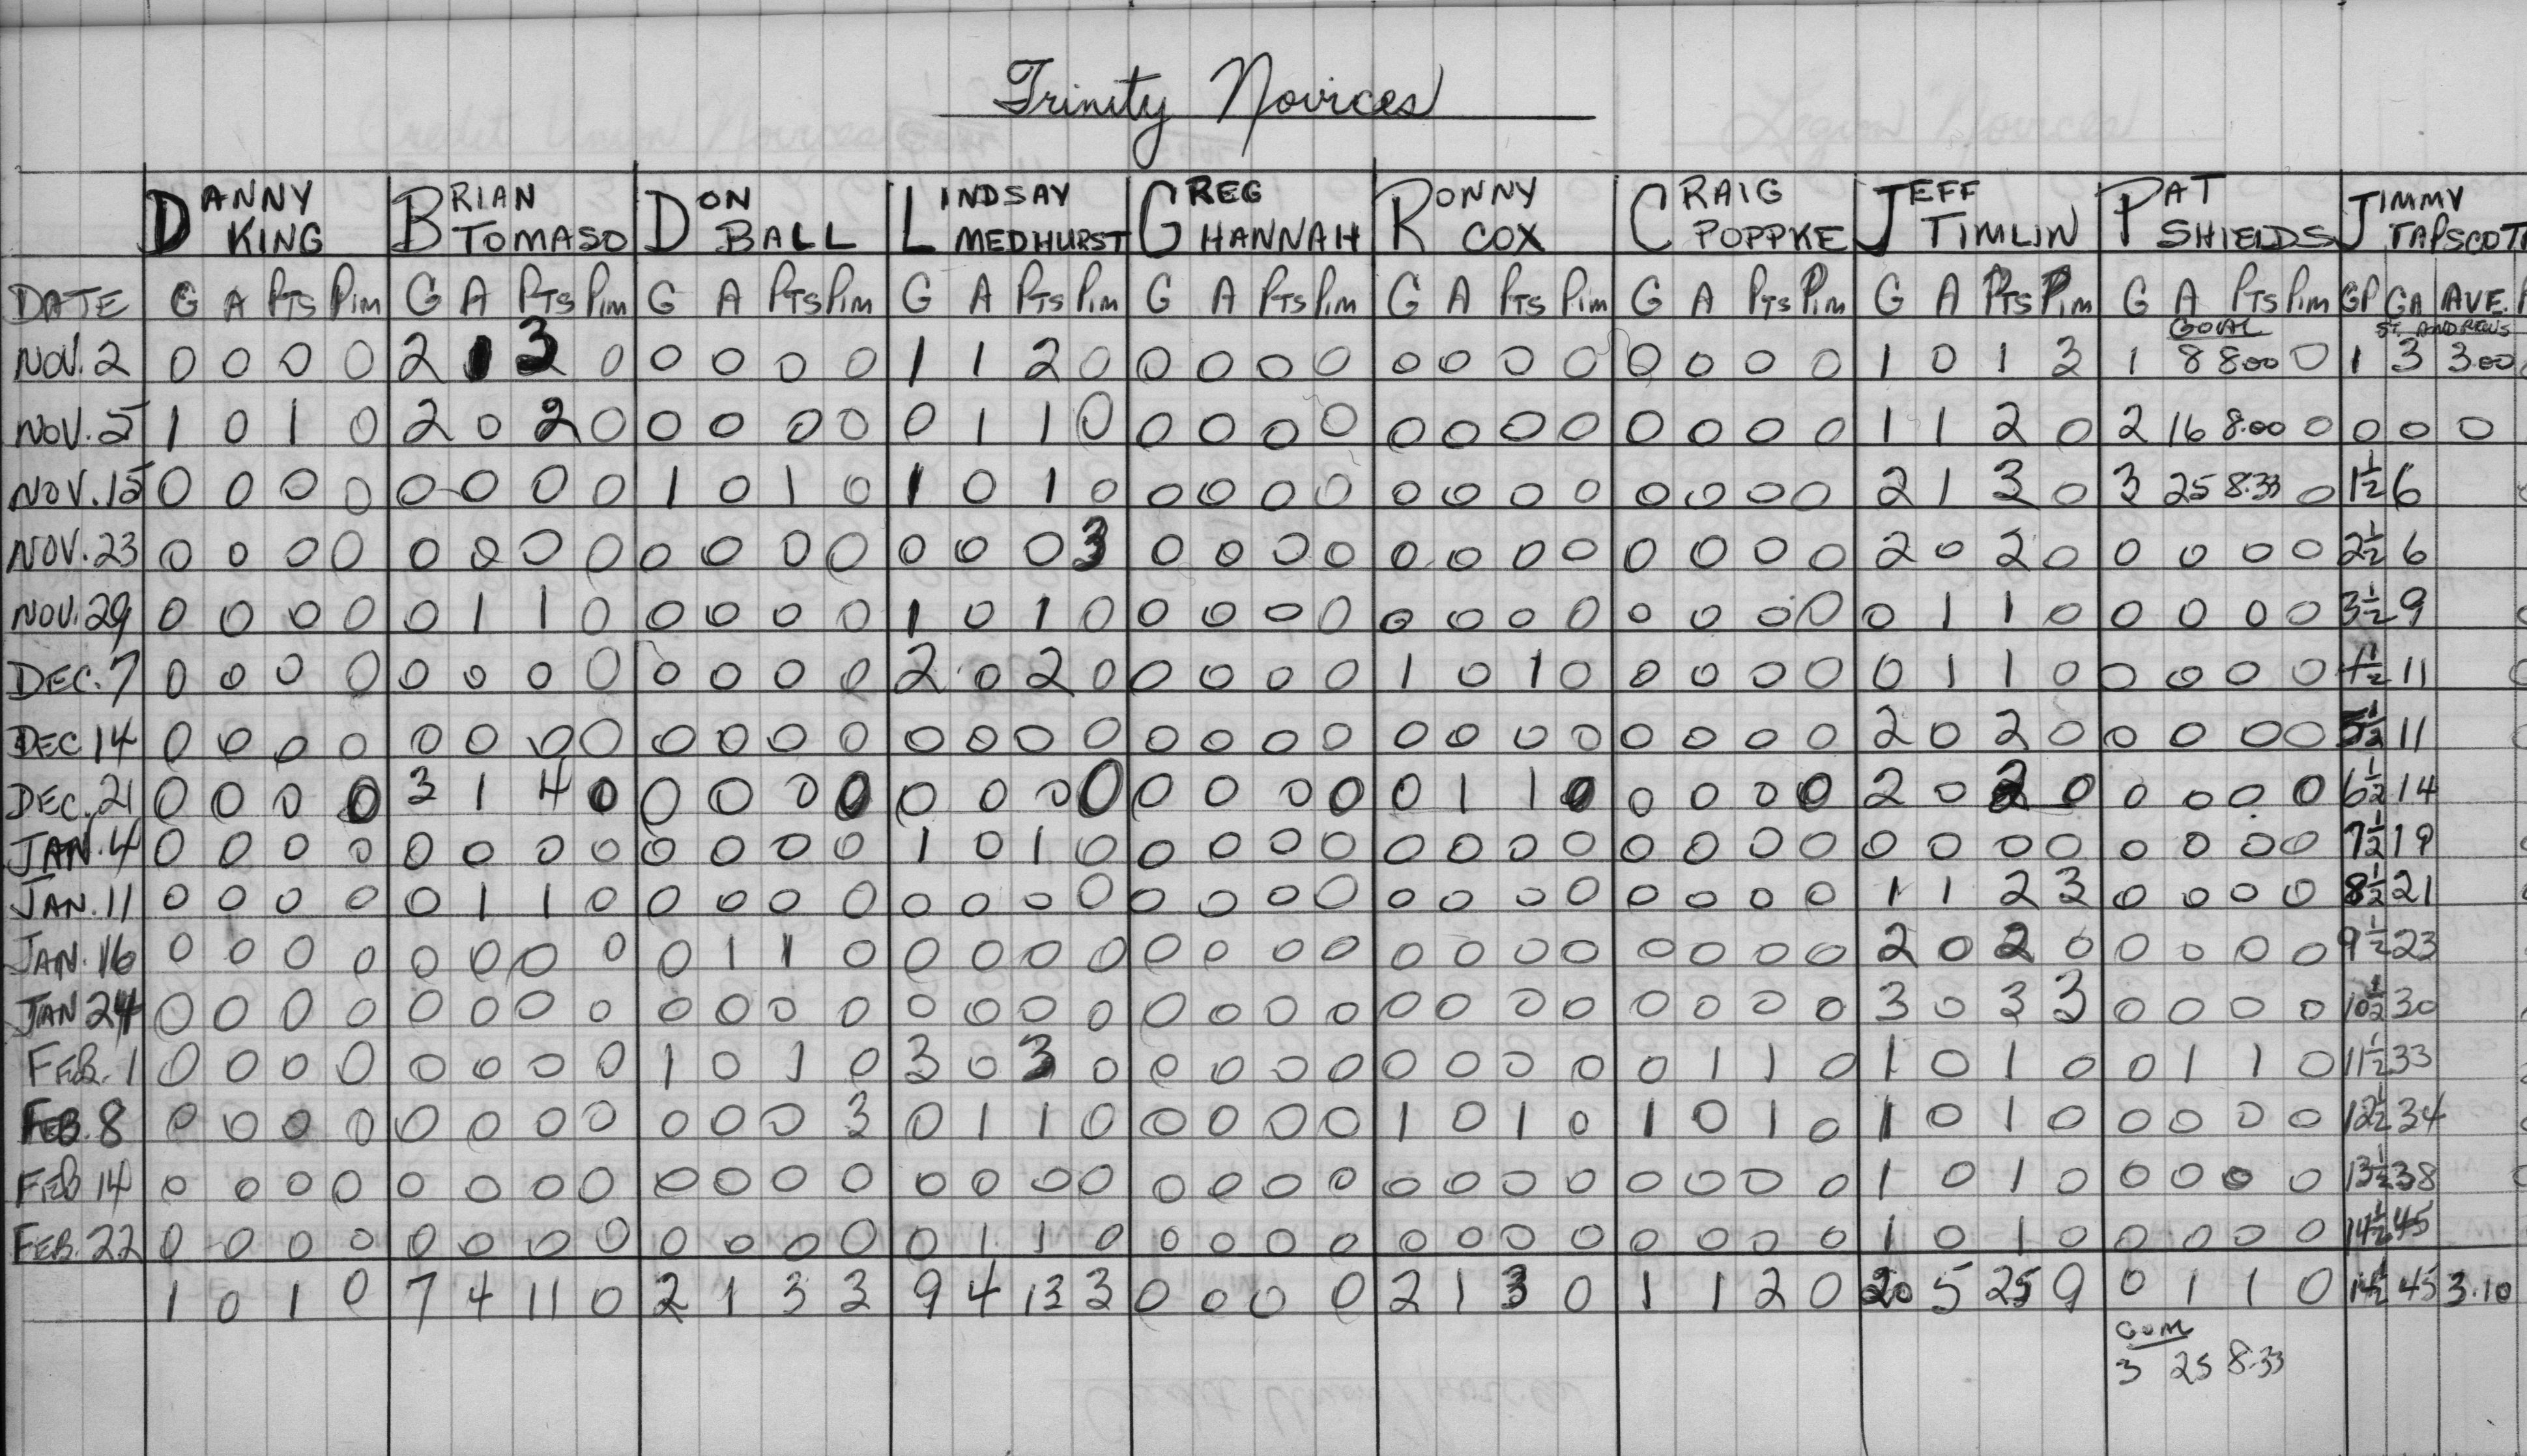 Trinity Novices
DANNY KING BRIAN TOMASO DON BALL LINDSAY MEDHURST GREG HANNAH RONNY COX CRAIG POPPKE JEFF TIMLIN PAT SHIELDS JIMMY TAPSCOTT
DATE G A PTS PIM G A PTS PIM G A PTS PIM G A PTS PIM G A PTS PIM G A PTS PIM G A PTS PIM G A PTS PIM G A PTS PIM GP GA AVE.
GOAL ST. ANDREWS
NOV. 2 0 0 0 0 2 1 3 0 0 0 0 0 1 1 2 0 0 0 0 0 0 0 0 0 0 0 0 0 1 0 1 3 1 8 8.00 0 1 3 3.00
NOV. 5 1 0 1 0 2 0 2 0 0 0 0 0 0 1 1 0 0 0 0 0 0 0 0 0 0 0 0 0 1 1 2 0 2 16 8.00 0 0 0 0
NOV. 15 0 0 0 0 0 0 0 0 1 0 1 0 1 0 1 0 0 0 0 0 0 0 0 0 0 0 0 0 2 1 3 0 3 25 8.33 0 1½ 6
NOV. 23 0 0 0 0 0 0 0 0 0 0 0 0 0 0 0 3 0 0 0 0 0 0 0 0 0 0 0 0 2 0 2 0 0 0 0 0 2½ 6
NOV. 29 0 0 0 0 0 1 1 0 0 0 0 0 1 0 1 0 0 0 0 0 0 0 0 0 0 0 0 0 0 1 1 0 0 0 0 0 3½ 9
DEC. 7 0 0 0 0 0 0 0 0 0 0 0 0 2 0 2 0 0 0 0 0 1 0 1 0 0 0 0 0 0 1 1 0 0 0 0 0 4½ 11
DEC 14 0 0 0 0 0 0 0 0 0 0 0 0 0 0 0 0 0 0 0 0 0 0 0 0 0 0 0 0 2 0 2 0 0 0 0 0 5½ 11
DEC. 21 0 0 0 0 3 1 4 0 0 0 0 0 0 0 0 0 0 0 0 0 0 1 1 0 0 0 0 0 2 0 2 0 0 0 0 0 6½ 14
JAN. 4 0 0 0 0 0 0 0 0 0 0 0 0 1 0 1 0 0 0 0 0 0 0 0 0 0 0 0 0 0 0 0 0 0 0 0 0 7½ 19
JAN. 11 0 0 0 0 0 1 1 0 0 0 0 0 0 0 0 0 0 0 0 0 0 0 0 0 0 0 0 0 1 1 2 3 0 0 0 0 8½ 21
JAN. 16 0 0 0 0 0 0 0 0 0 1 1 0 0 0 0 0 0 0 0 0 0 0 0 0 0 0 0 0 2 0 2 0 0 0 0 0 9½ 23
JAN 24 0 0 0 0 0 0 0 0 0 0 0 0 0 0 0 0 0 0 0 0 0 0 0 0 0 0 0 0 3 0 3 3 0 0 0 0 10½ 30
FEB. 1 0 0 0 0 0 0 0 0 1 0 1 0 3 0 3 0 0 0 0 0 0 0 0 0 0 1 1 0 1 0 1 0 0 1 1 0 11½ 33
FEB. 8 0 0 0 0 0 0 0 0 0 0 0 3 0 1 1 0 0 0 0 0 1 0 1 0 1 0 1 0 1 0 1 0 0 0 0 0 12½ 34
FEB 14 0 0 0 0 0 0 0 0 0 0 0 0 0 0 0 0 0 0 0 0 0 0 0 0 0 0 0 0 1 0 1 0 0 0 0 0 13½ 38
FEB. 22 0 0 0 0 0 0 0 0 0 0 0 0 0 1 1 0 0 0 0 0 0 0 0 0 0 0 0 0 1 0 1 0 0 0 0 0 14½ 45
1 0 1 0 7 4 11 0 2 1 3 3 9 4 13 3 0 0 0 0 2 1 3 0 1 1 2 0 20 5 25 9 0 1 1 0 14½ 45 3.10
3 25 8.33